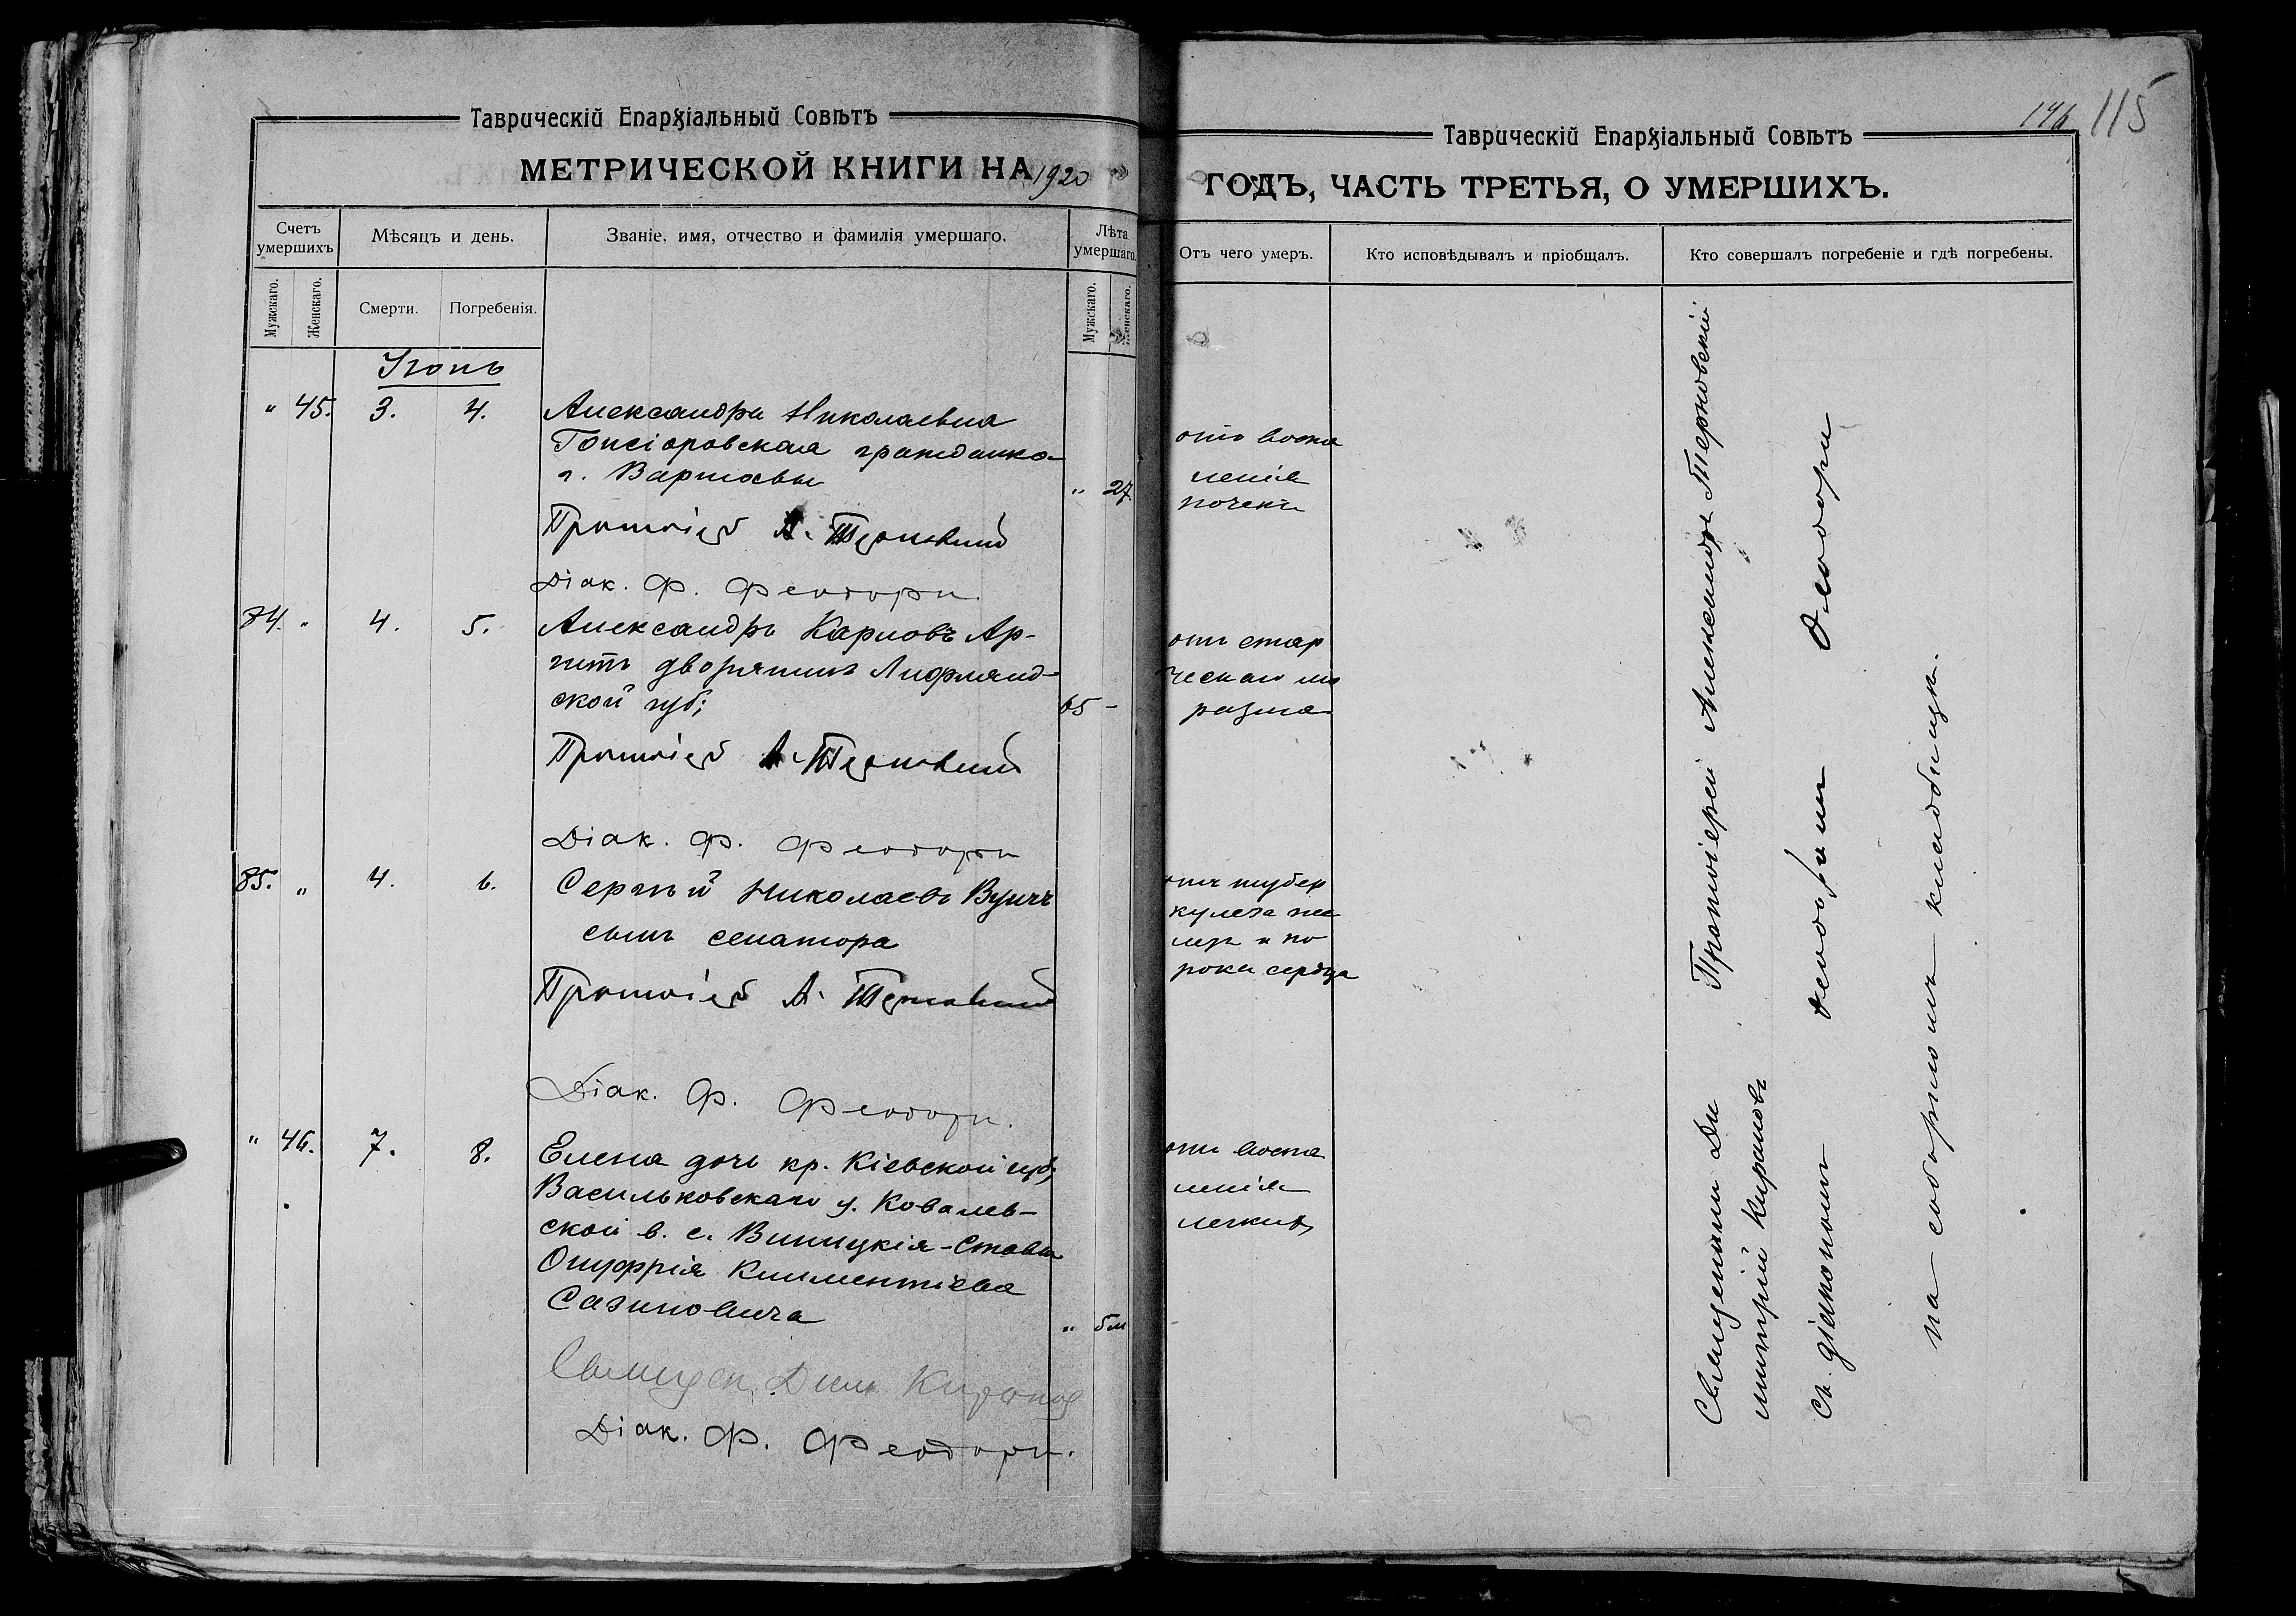 Таврическій Епархіальный Совѣтъ
МЕТРИЧЕСКОЙ КНИГИ НА 1920
Счетъ умершихъ
Мѣсяцъ и день.
Званіе, имя, отчество и фамилія умершаго.
Лѣта умершаго.
Мужскаго.
Женскаго.
Смерти.
Погребенія.
Мужскаго.
Женскаго.
Іюнь
" 45. 3. 4. Александра Николаевна
Гонсіоровская гражданка
г. Варшавы " 27
Протоіер А. Терновскій
Діак. Ф. Феодори.
84. " 4. 5. Александръ Карловъ Ар-
дворянинъ Лифлянд-
ской губ; 65 -
Протоіер А. Терновскій
Діак. Ф. Феодори
85. " 4. 6. Сергѣй Николаевъ Вуичъ
сынъ сенатора
Протоіер А. Терновскій
Діак. Ф. Феодори.
" 46. 7. 8. Елена дочь кр. Кіевской губ;
Васильковскаго у. Ковалев-
ской в. с. Виницкія-Ставы
Онуфрія Климентіева
Сазиновича " 5 м
Священ. Дим. Киранов
Діак. Ф. Феодори.
146 115
Таврическій Епархіальный Совѣтъ
ГОДЪ, ЧАСТЬ ТРЕТЬЯ, О УМЕРШИХЪ.
Отъ чего умеръ.
Кто исповѣдывалъ и пріобщалъ.
Кто совершалъ погребеніе и гдѣ погребены.
отъ воспа
ленія
почекъ
отъ стар
ческаго ма
разма
отъ тубер
кулеза
и по
рока сердца
отъ воспа
ленія
легкихъ
Протоіерей Александръ Терновскій
Священникъ Ди
митрій Кирановъ
съ діакономъ Феодоромъ Феодори
на соборномъ кладбищѣ.